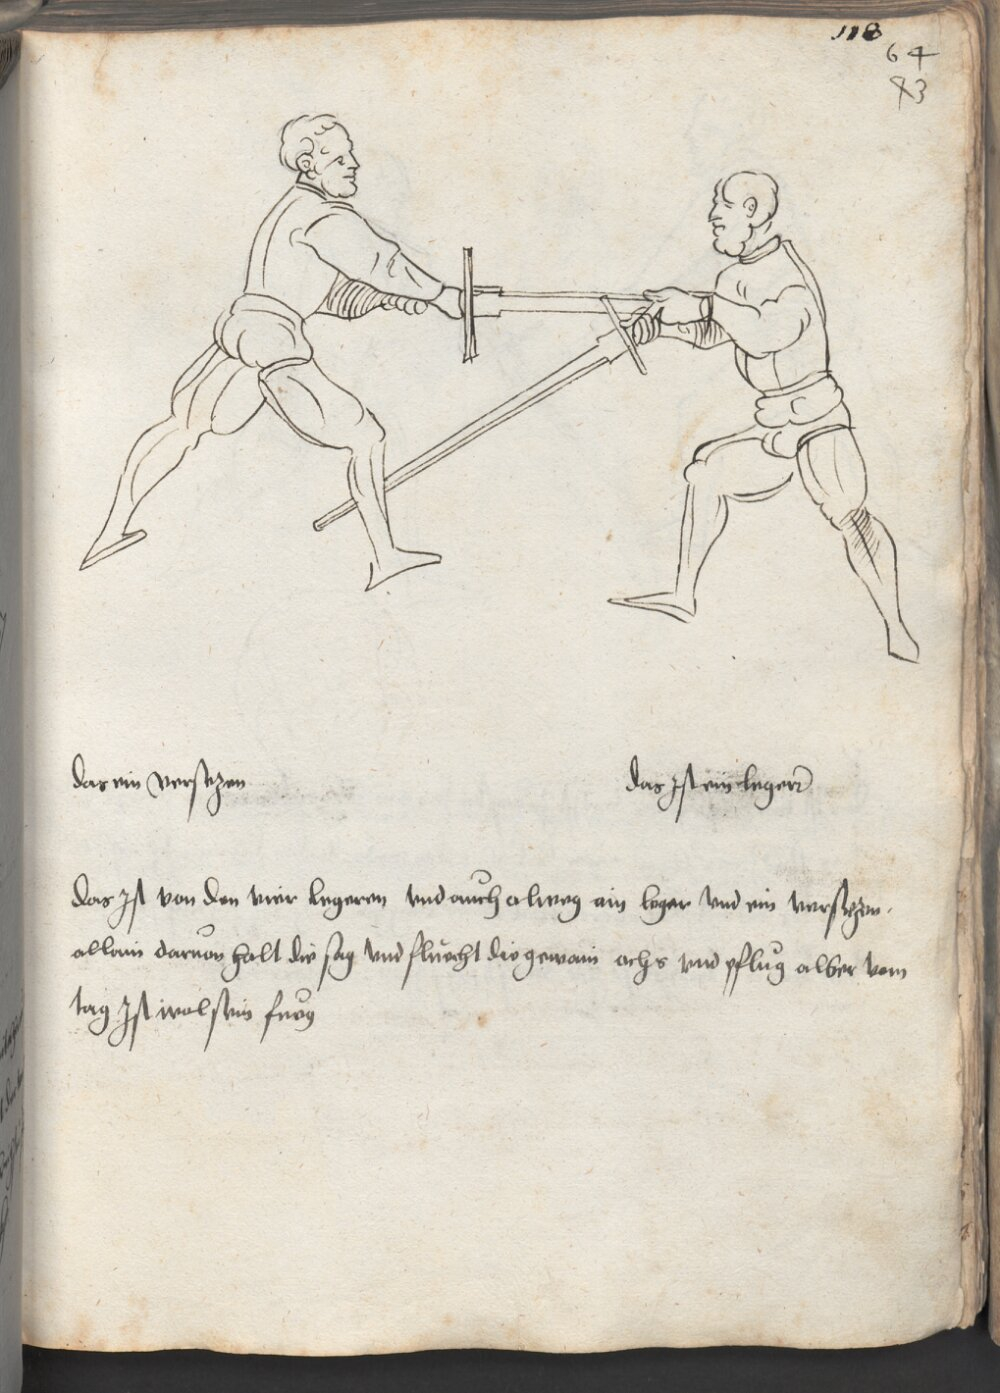 118
64
83
das ein versetzen
das Ist ein leger
das Ist von den vier legeren vnd auch alweg ain leger vnd ein versetzen.
allain daruon halt die sag vnd fluecht die gemain ochs vnd pflug alber vom
tag Ist wol sein fuog